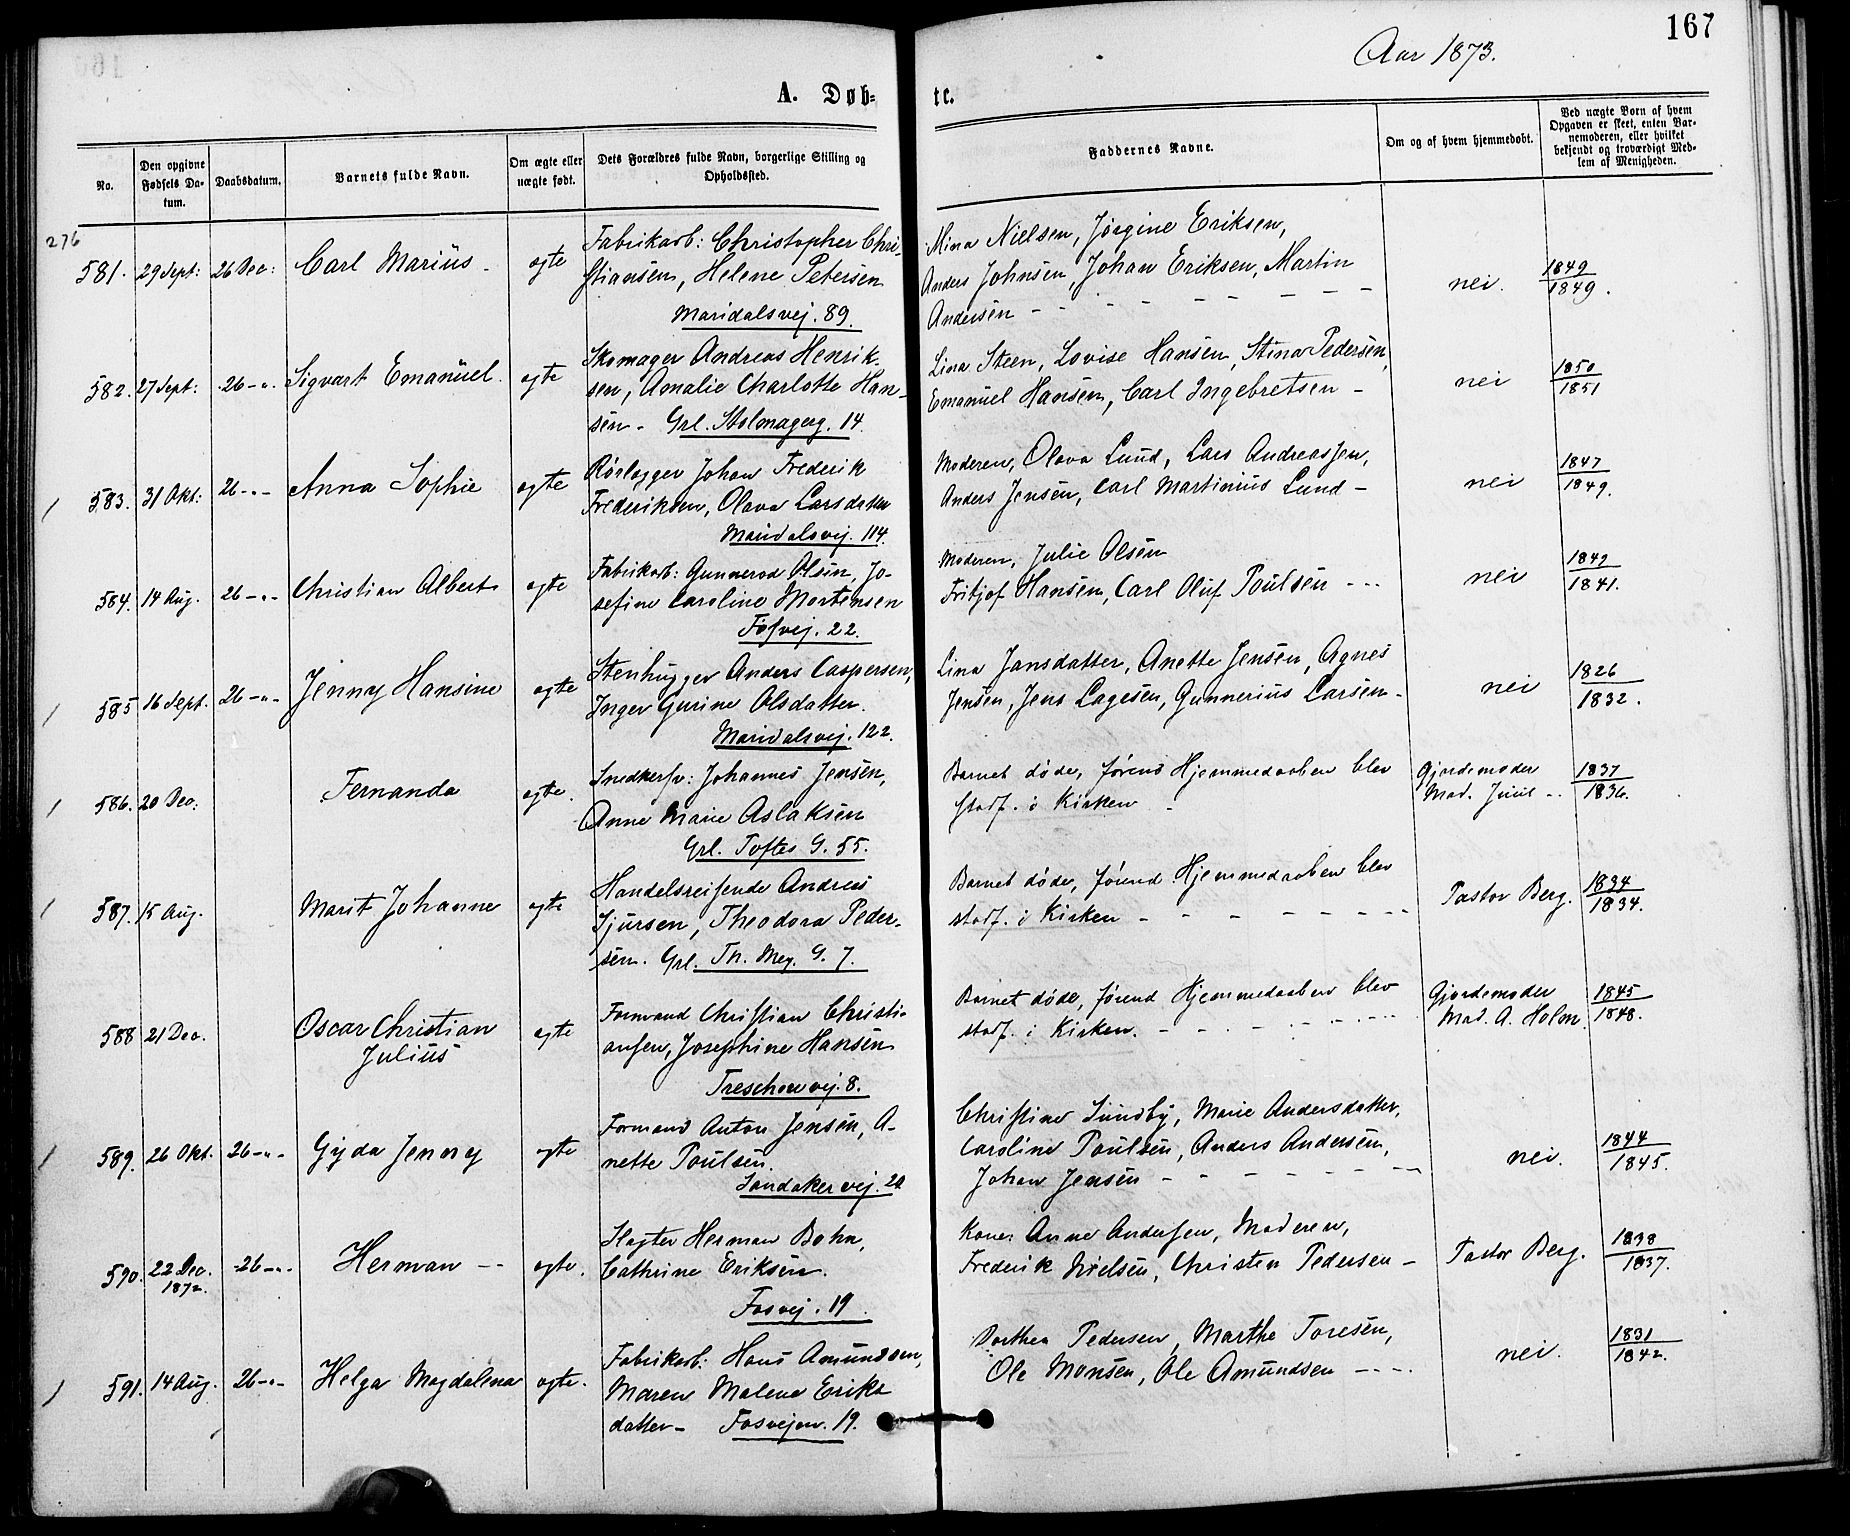 167
Aar 1873.
A. Døb-
te.
No.
Den opgivne Fødsels Da-
tum.
Daabsdatum.
Barnets fulde Navn.
Om ægte eller
uægte født.
Dets Forældres fulde Navn, borgerlige Stilling og
Opholdssted.
Faddernes Navne.
Om og af hvem hjemmedøbt.
Ved uægte Børn af hvem
Opgaven er skeet, enten Bar-
nemoderen, eller hvilket
bekjendt og troværdigt Med-
lem af Menigheden.
276
581. 29 Sept: 26 Dec: Carl Marius - ægte
Fabrikarb: Christopher Chri-
stiansen, Helene Petersen
Maridalsvej. 89.
Mina Nielsen, Jørgine Eriksen,
Anders Johnsen, Johan Eriksen, Martin
Andersen - - - - - - - -
nei.
1849
1849.
582. 27 Sept: 26 -"- Sigvart Emanuel. ægte
Skomager Andreas Henrik-
sen, Amalie Charlotte Han-
sen - Grl. Stolmagerg. 14.
Lina Steen, Lovise Hansen, Stina Pedersen,
Emanuel Hansen, Carl Ingebretsen -
nei
1850
1851
583. 31 Okt: 26 -"- Anna Sophie ægte
Rørlægger Johan Frederik
Frederiksen, Olava Larsdatter
Maridalsvej. 114.
Moderen, Olava Lund, Lars Andreassen,
Anders Jensen, Carl Martinius Lund -
nei
1847
1849.
584. 14 Aug. 26 -"- Christian Albert ægte
Fabrikarb: Gunnerod Olsen, Jo-
sefine Caroline Mortensen
Fosvej. 22.
Moderen, Julie Olsen
Fritjof Hansen, Carl Oluf Poulsen - - -
nei
1849
1841.
585 16 Sept. 26 -"- Jenny Hansine ægte
Stenhugger Anders Caspersen,
Inger Gurine Olsdatter.
Maridalsvej. 122.
Lina Jansdatter, Anette Jensen, Agnes
Jensen, Jens Lagesen, Gunnerius Larsen -
nei
1826
1832.
586. 20 Dec: Fernanda ægte.
Snedkersv: Johannes Jensen,
Anne Marie Aslaksen
Grl. Toftes G. 55.
Barnet døde, førend Hjemmedaaben blev
stadf. i Kirken -
Gjordemoder
Mad. Juul -
1837
1836.
587. 15 Aug. Marit Johanne ægte
Handelsreisende Andreas
Sjursen, Theodora Peder-
sen. Grl. Th. Mey. G. 7.
Barnet døde, førend Hjemmedaaben blev
stadf. i Kirken - - - - - - - - -
Pastor Berg.
1834
1834.
588 21 Dec. Oscar Christian
Julius ægte
Formand Christian Christi-
ansen, Josephine Hansen
Treschowvej. 8.
Barnet døde, førend Hjemmedaaben blev
stadf. i Kirken. - - - - - - - -
Gjordemoder
Mad. A. Holm.
1845
1848.
589. 26 Okt. 26 -"- Gyda Jenny ægte
Formand Anton Jensen, A-
nette Poulsen.
Sandakervej. 20
Christine Sundby, Marie Andersdatter,
Caroline Poulsen, Anders Andersen,
Johan Jensen - - - - - - -
nei.
1844
1845.
590. 22 Dec. 26 -"- Herman - - ægte.
1872.
Slagter Herman Bohn,
Cathrine Eriksen.
Fosvej. 19.
Kone: Anne Andersen, Moderen,
Frederik Nielsen, Christen Pedersen -
Pastor Berg.
1838
1837.
591. 14 Aug. 26 -"- Helga Magdalena ægte.
Fabrikarb: Hans Amundsen,
Maren Malena Eriks
datter - Fosvejen. 19.
Dorthea Pedersen, Marthe Toresen,
Ole Monsen, Ole Amundsen - - - -
nei.
1831
1842.